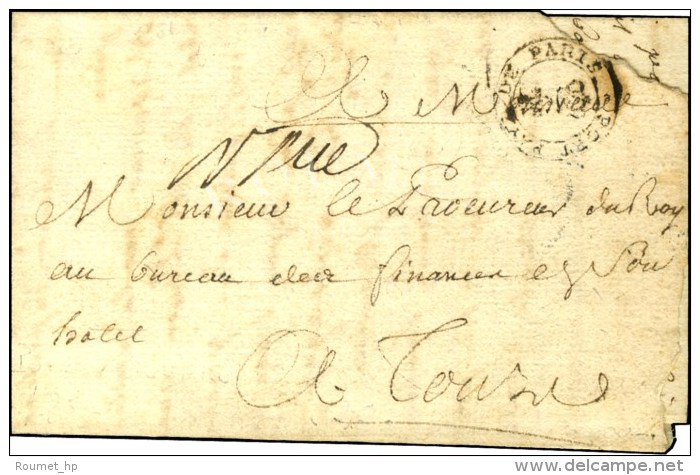 A Monsieur
DE PARIS PORT PAYÉ
Monsieur le Procureur du Roy
au bureau des finances en Son
hotel
A Tours
Roumet_hp
delcampe.net